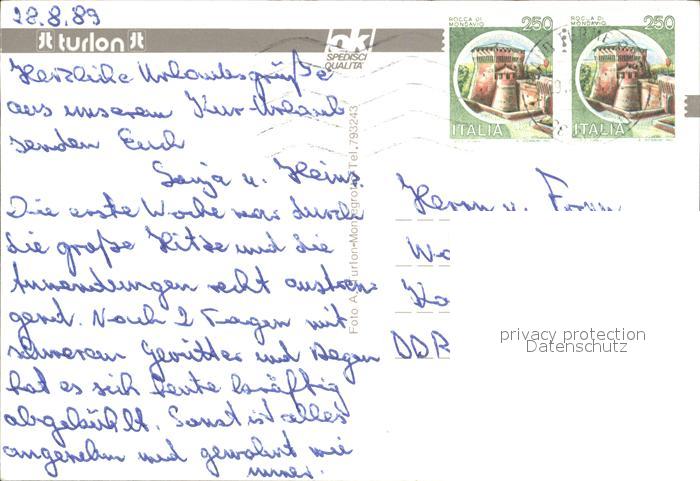 28.8.89
turlon
ok
SPEDISCI
QUALITA'
ROCCA DI
MONDAVIO
250
ITALIA
ROCCA DI
MONDAVIO
250
ITALIA
Herzliche Urlaubsgrüße
aus unserem Kur-Urlaub
senden Euch
Sonja u. Heinz.
Die erste Woche war durch
die große Hitze und die
Anwendungen recht anstren-
gend. Nach 2 Tagen mit
schwerem Gewitter und Regen
hat es sich heute kräftig
abgekühlt. Sonst ist alles
angenehm und gewohnt wie
immer.
Foto. A. Turlon-Montegrotto Tel. 793243
Herrn u.
DDR
privacy protection
Datenschutz